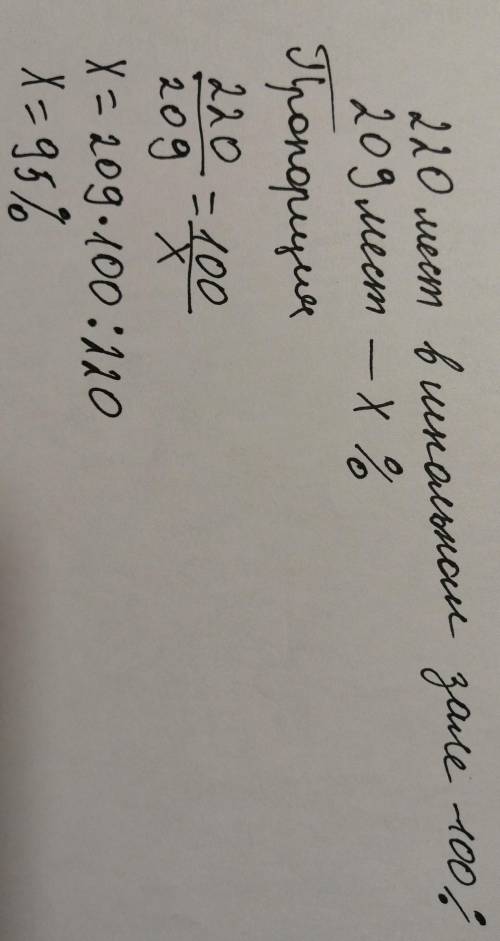 220 мест в школьном зале - 100%
209 мест — x %
Пропорция
220/209 = 100/x
x = 209 · 100 : 220
x = 95%